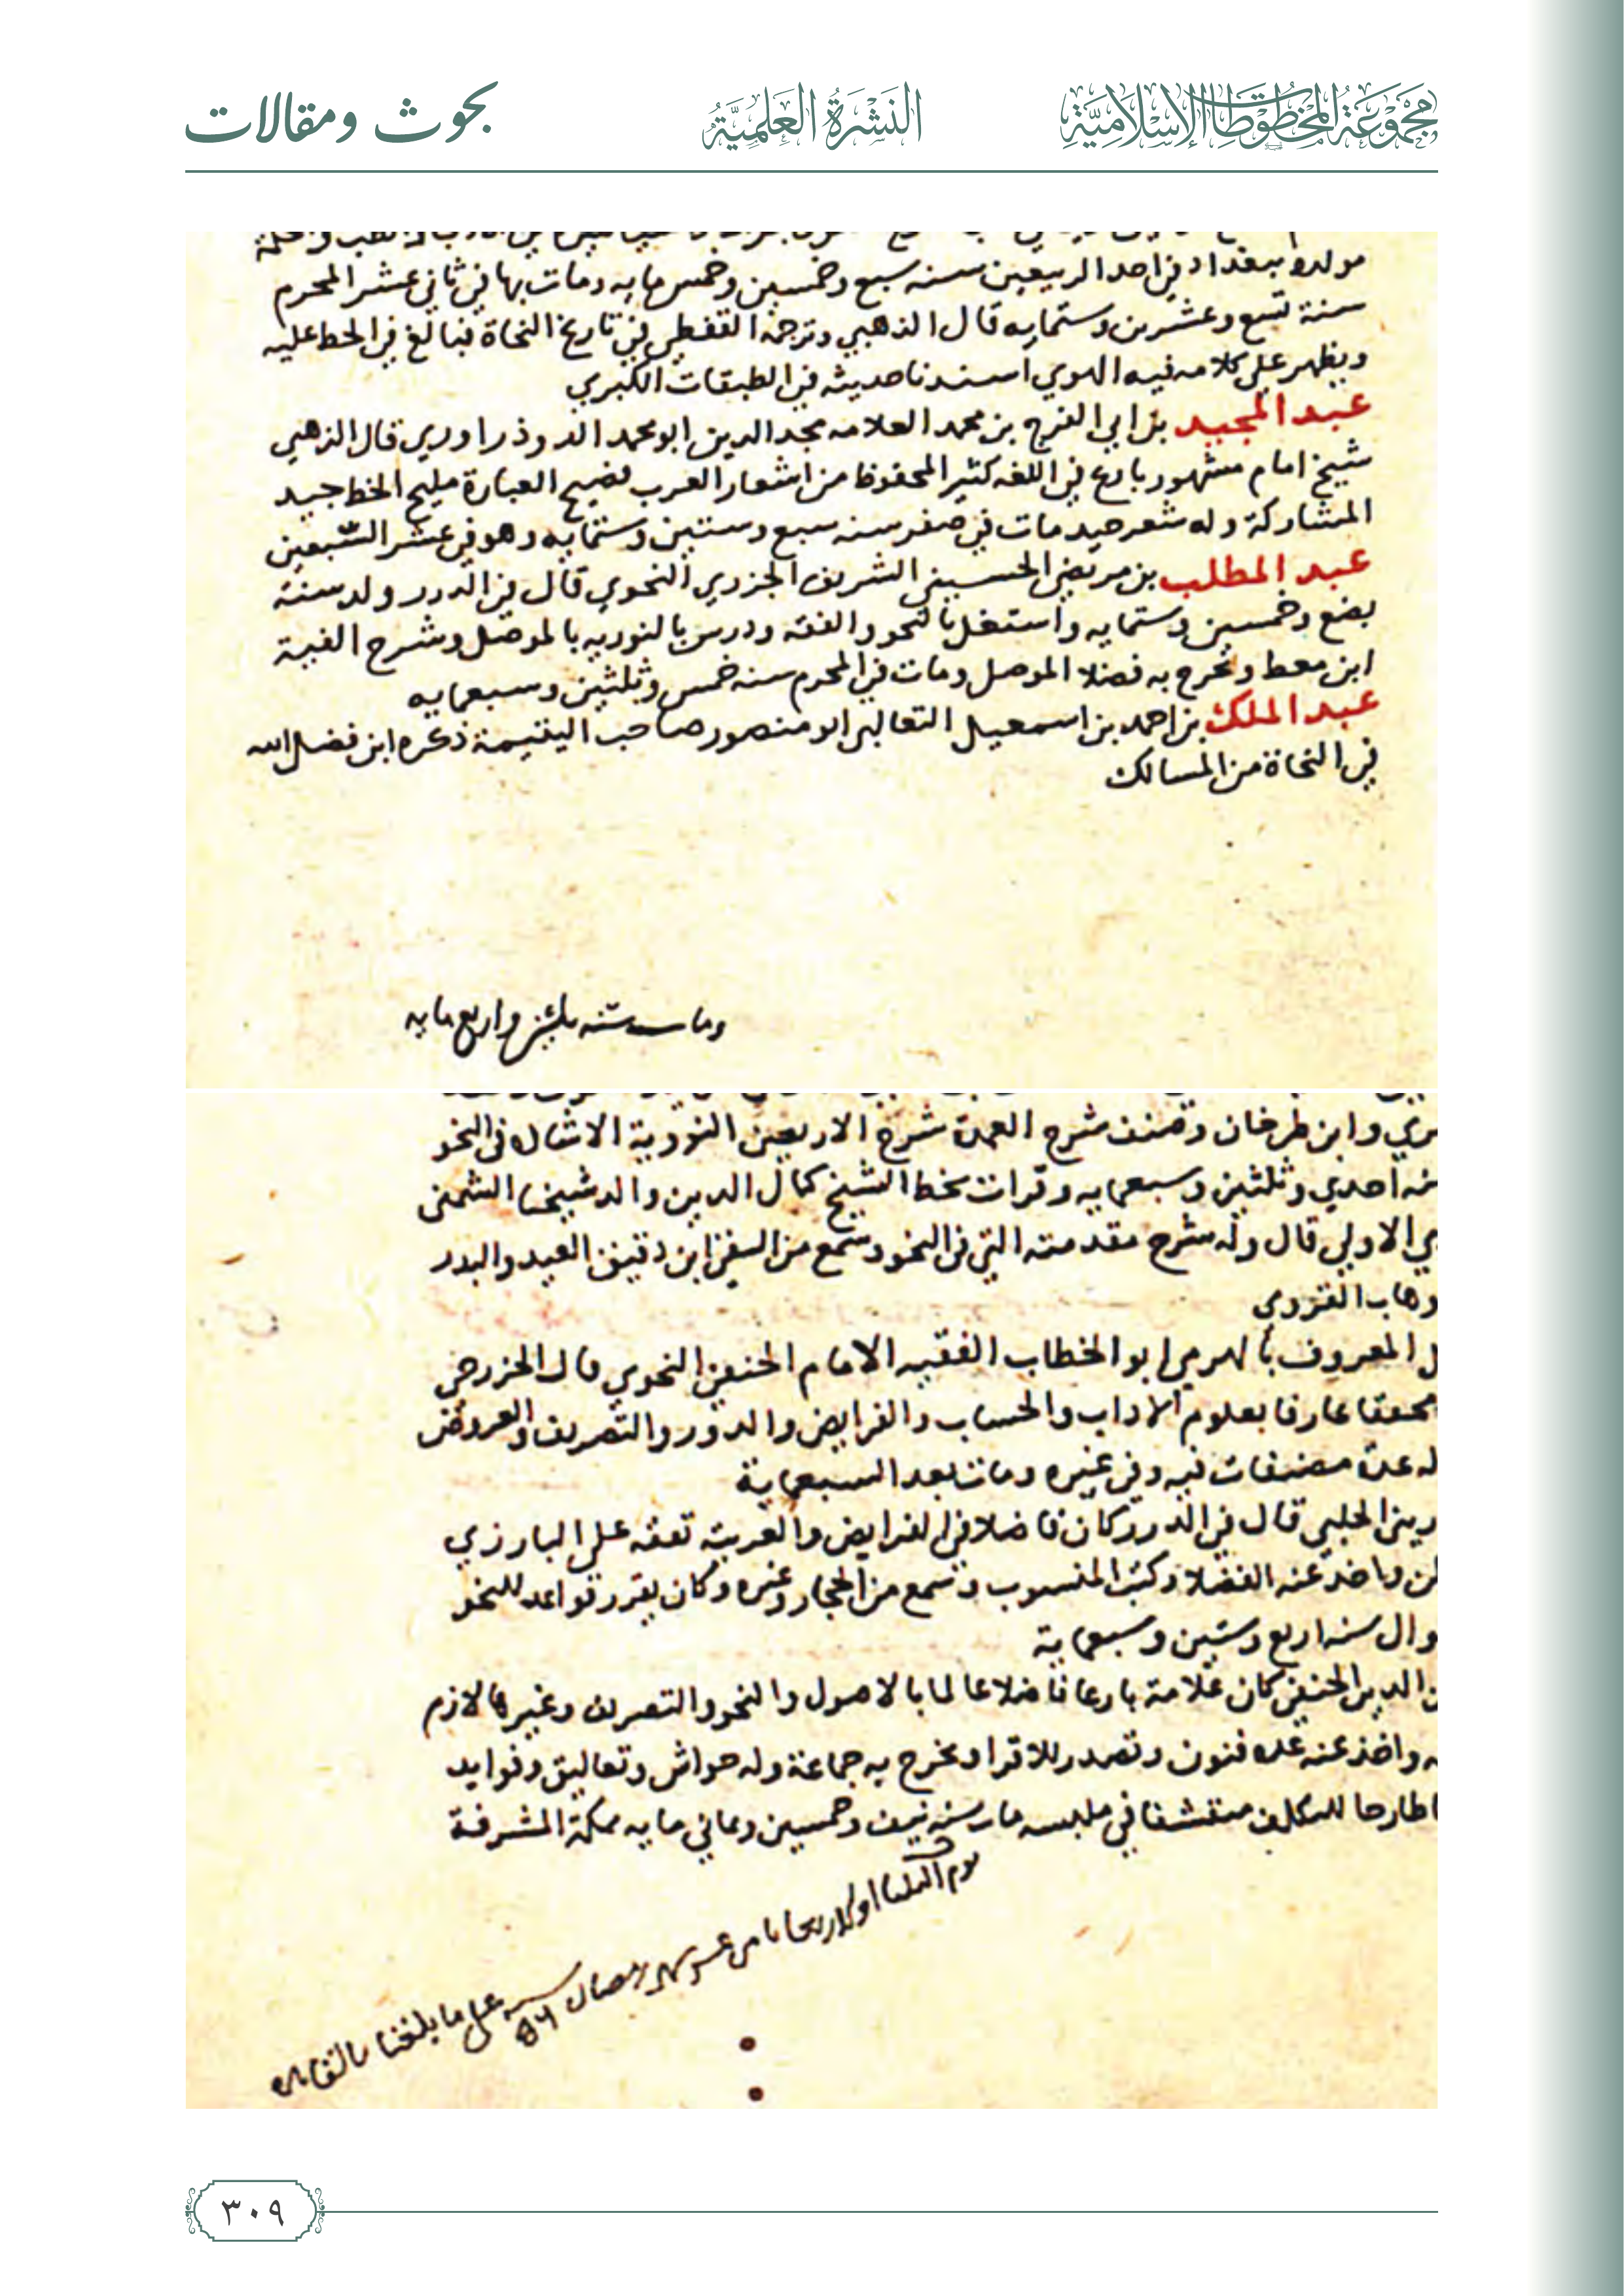 مجموعة المخطوطات الإسلامية
النشرة العلمية
بحوث ومقالات
مولده ببغداد في احد الربيعين سنه سبع وخمسين وخمس مايه ومات بها في ثاني عشر المحرم
سنة تسع وعشرين وستمايه قال الذهبي وترجمه القفطي في تاريخ النحاة فبالغ في الحط عليه
ويظهر علي كلامه فيه الهوي اسندنا حديثه في الطبقات الكبري
عبد المجيد بن ابي الفرج بن محمد العلامه مجد الدين ابو محمد الدوذراوري قال الذهبي
شيخ امام مشهور بارع في اللغه كثير المحفوظ من اشعار العرب فصيح العبارة مليح الخط جيد
المشاركة وله شعر جيد مات في صفر سنه سبع وستين وستمايه وهو في عشر السبعين
عبد المطلب بن مرتضي الحسيني الشريف الجزري النحوي قال في الدرر ولد سنة
بضع وخمسين وستمايه واستغل بالنحو والفقه ودرس بالنوريه بالموصل وشرح الفية
ابن معط وتخرج به فضلا الموصل ومات في المحرم سنه خمس وثلثين وسبعمايه
عبد الملك بن احمد بن اسمعيل الثعالبي ابو منصور صاحب اليتيمة ذكره ابن فضل الله
في النحاة من المسالك
ومات سنه ثلثين واربع مايه
وابن طرخان وصنف شرح العمدة شرح الاربعين النووية الامثال في النحو
احدي وثلثين وسبعمايه وقرات بخط الشيخ كمال الدين والد شيخنا الشمني
الاولي قال وله شرح مقدمته التي في النحو وسمع من ابن دقيق العيد والبدر
المعروف بالهرمي ابو الخطاب الفقيه الامام الحنفي النحوي قال الخزرجي
محققا عارفا بعلوم الاداب والحساب والفرايض والدور والتصريف والعروض
له عدة مصنفات فيه وفي غيره ومات بعد السبعماية
الحلبي قال في الدرر كان فاضلا في الفرايض والعربية تفقه علي البارزي
واخذ عنه الفضلا وكتب المنسوب وسمع من الحجار وغيره وكان يقرر قواعد للنحو
سنه اربع وستين وسبعماية
الدين الحنفي كان علامة بارعا فاضلا عالما بالاصول والنحو والتصريف وغيرها لازم
واخذ عنه عده فنون وتصدر للاقرا وتخرج به جماعة وله حواش وتعاليق وفوايد
طارحا للتكلف متقشفا في ملبسه مات سنه نيف وخمسين وثماني مايه بمكة المشرفة
يوم الثلثا او الاربعا ثامن عشر شهر رمضان سنه
علي ما بلغنا بالقاهره
٣٠٩